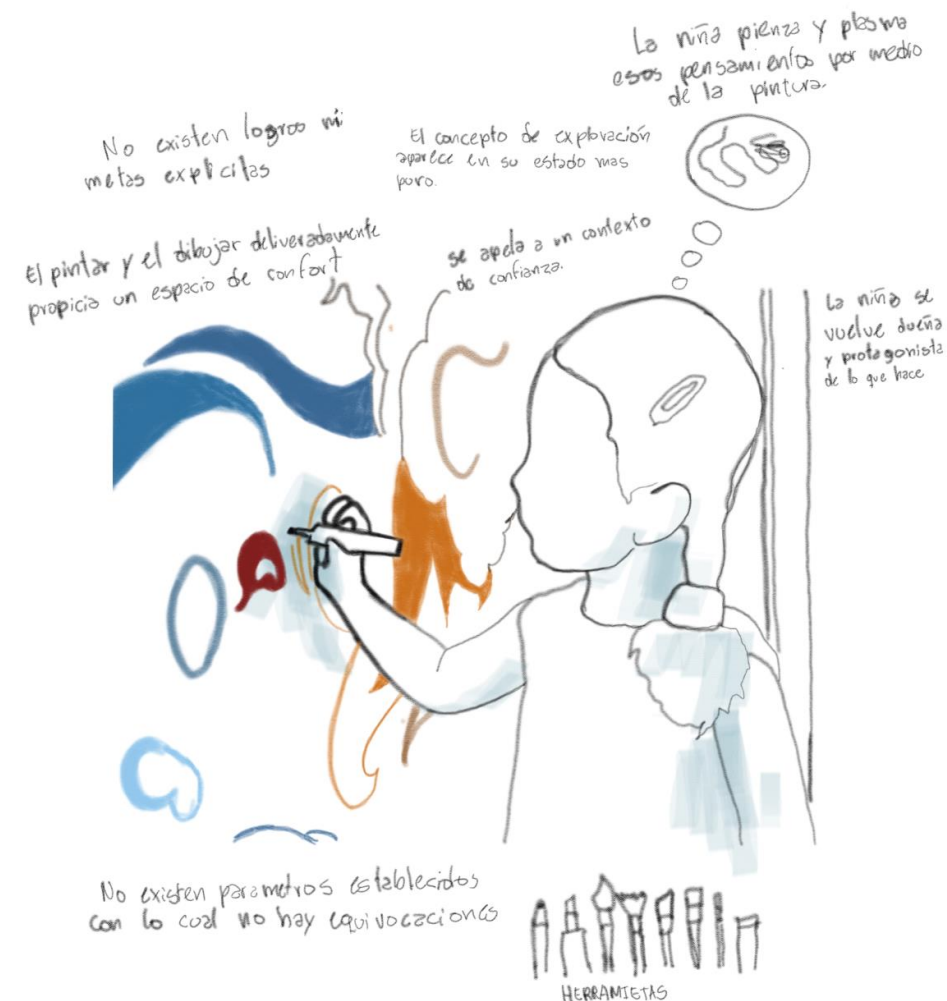 La niña pienza y plasma
esos pensamientos por medio
de la pintura.
No existen logros ni
metas explicitas
El concepto de exploración
aparece en su estado mas
puro.
El pintar y el dibujar deliveradamente
propicia un espacio de confort
se apela a un contexto
de confianza.
La niña se
vuelve dueña
y protagonista
de lo que hace
No existen parametros establecidos
con lo cual no hay equivocaciones
HERRAMIETAS